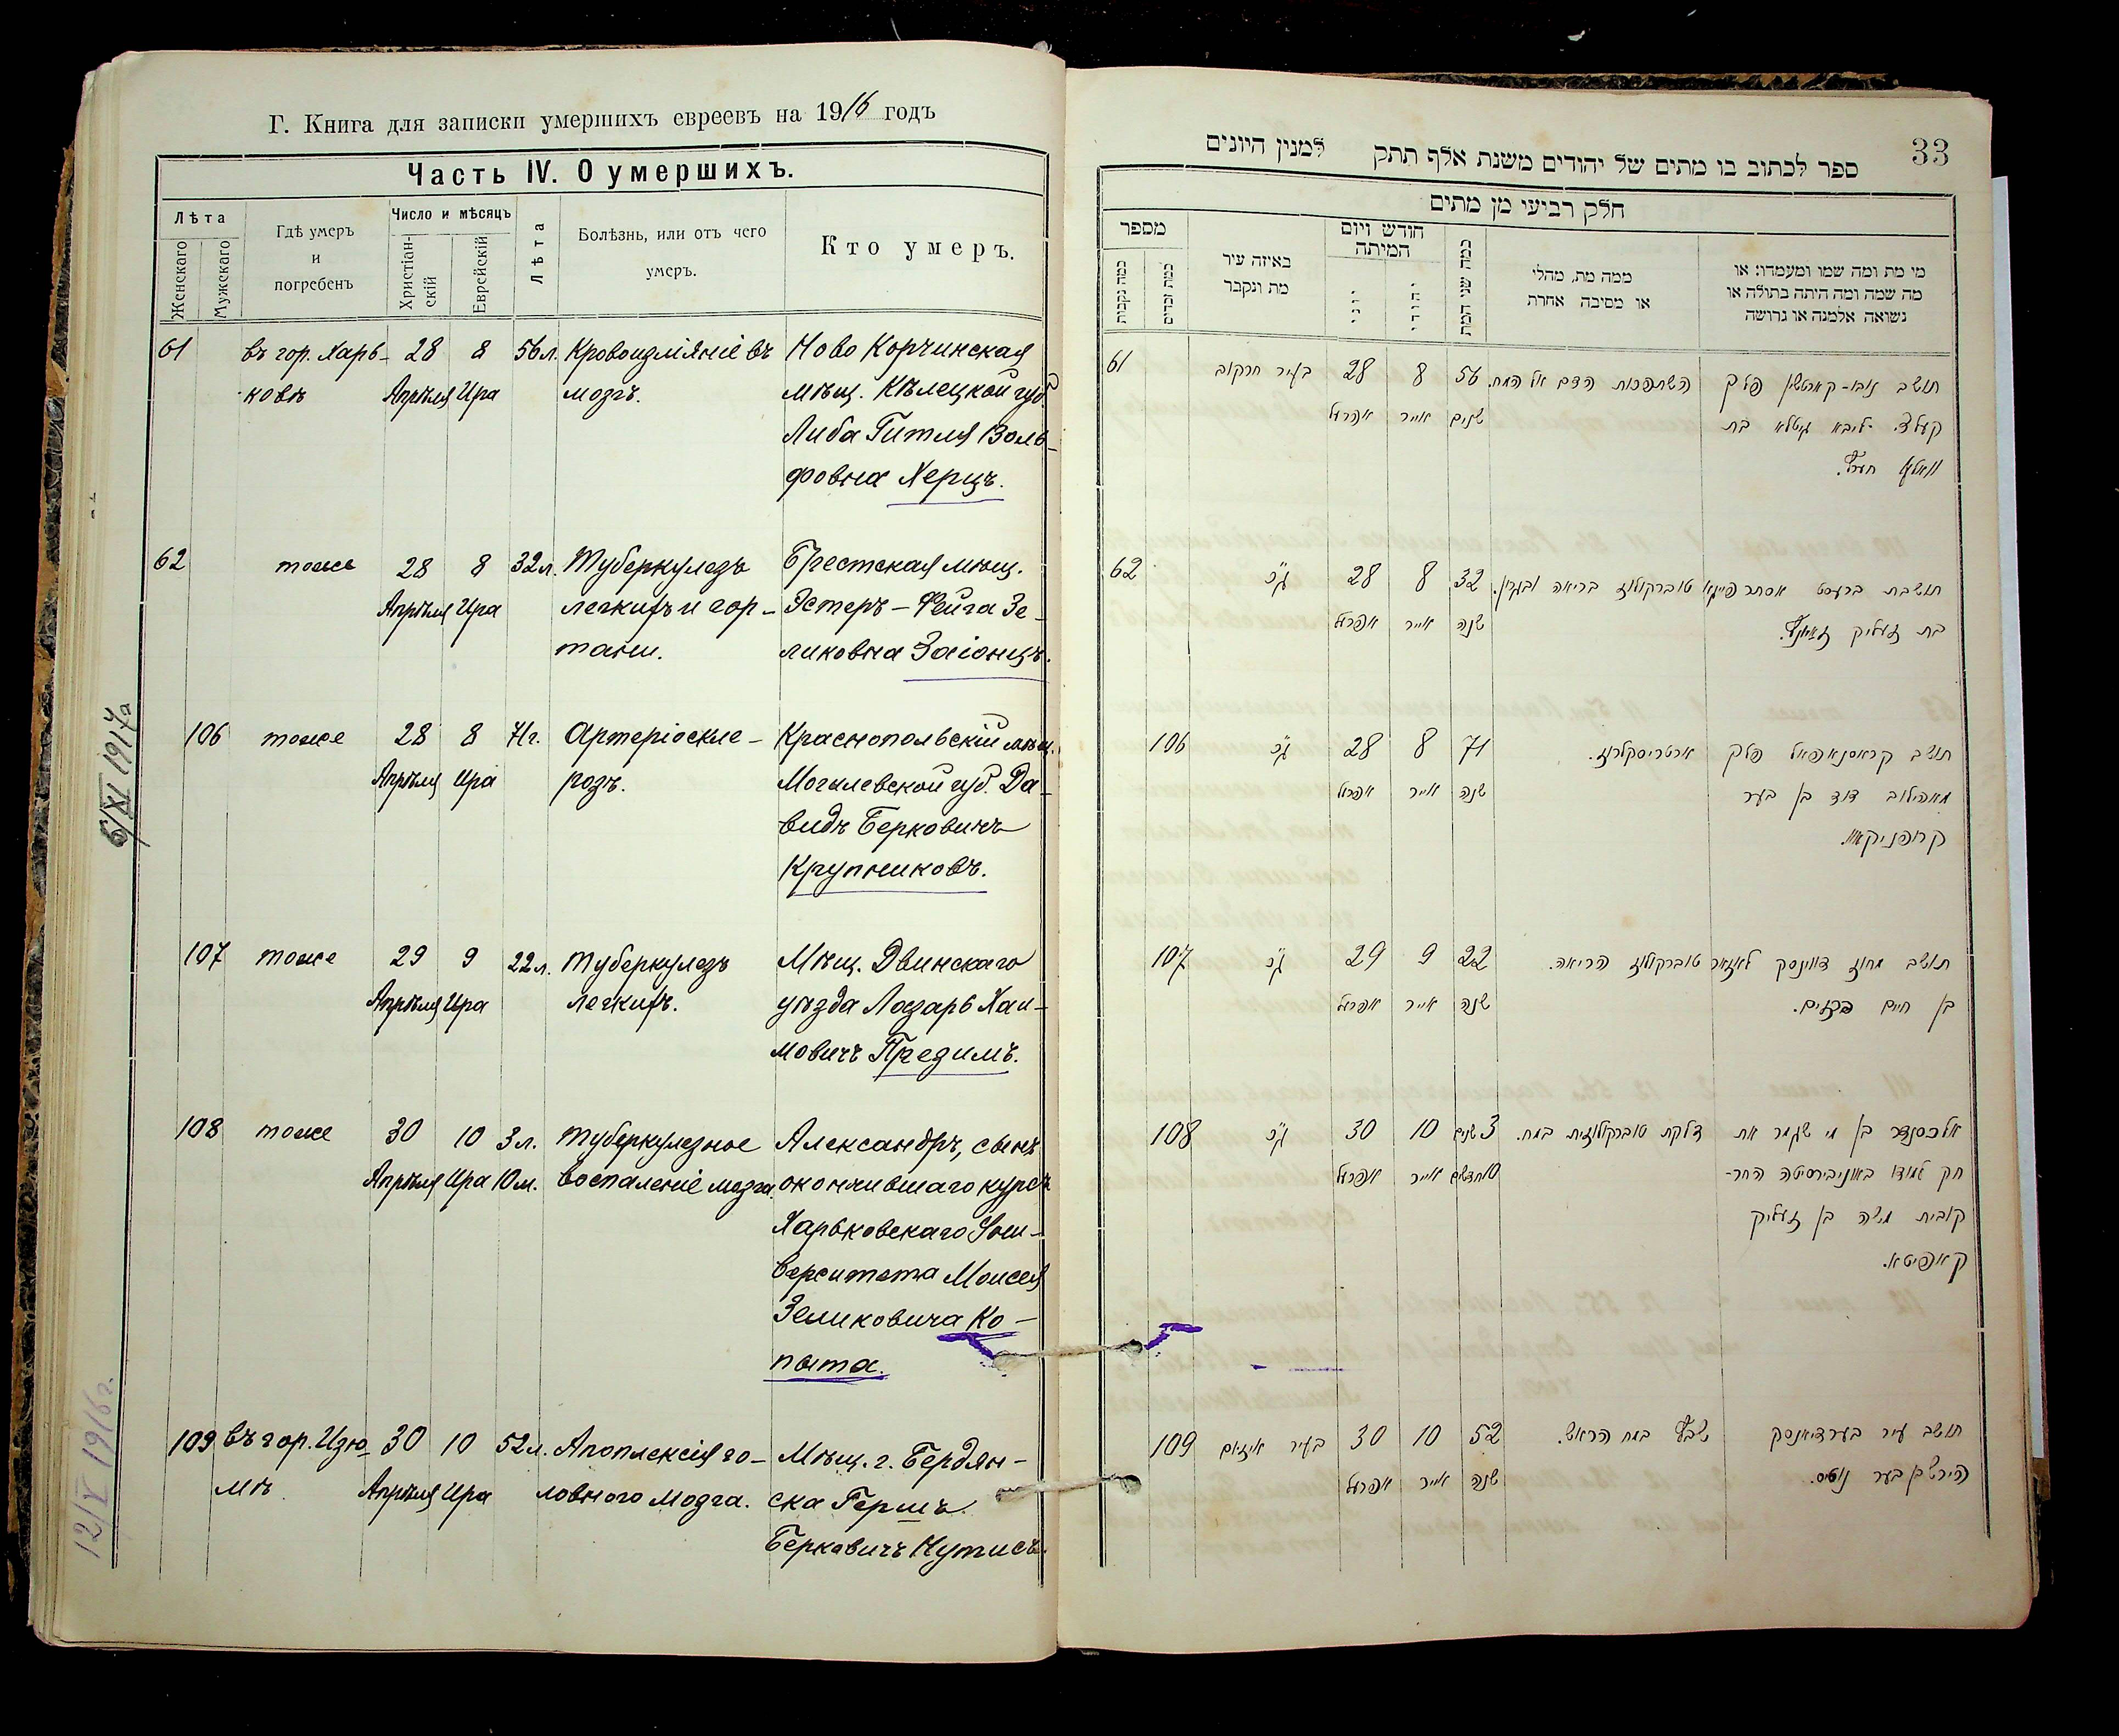 Г. Книга для записки умершихъ евреевъ на 1916 годъ
Часть IV. О умершихъ.
Лѣта
Женскаго
Мужскаго
Гдѣ умеръ
и
погребенъ
Число и мѣсяцъ
Христіан-
скій
Еврейскій
Лѣта
Болѣзнь, или отъ чего
умеръ.
Кто умеръ.
61 въ гор. Харь- 28 8 56 л. Кровоизліяніе въ Ново Корчинская
ковѣ Апрѣля Ира мозгъ. мѣщ. Кѣлецкой губ.
Либа Гитля Воль-
фовна Херцъ.
62 тоже 28 8 32 л. Туберкулезъ Брестская мѣщ.
Апрѣля Ира легкихъ и гор- Эстеръ-Фейга Зе-
тани. ликовна Заіонцъ.
106 тоже 28 8 71 г. Артеріоскле- Краснопольскій мѣщ.
Апрѣля Ира розъ. Могилевской губ. Да-
видъ Берковичъ
Крупниковъ.
107 тоже 29 9 22 л. Туберкулезъ Мѣщ. Двинскаго
Апрѣля Ира легкихъ. уѣзда Лазарь Хаи-
мовичъ Презимъ.
108 тоже 30 10 3 л. Туберкулезное Александръ, сынъ
Апрѣля Ира 10 м. воспаленіе мозга. окончившаго курсъ
Харьковскаго Уни-
верситета Моисея
Зеликовича Ко-
пыта.
109 въ гор. Изю- 30 10 52 л. Апоплексія го- Мѣщ. г. Бердян-
мѣ Апрѣля Ира ловного мозга. ска Гершъ
Берковичъ Нутисъ.
5/XI 1917 г.
12/V 1916 г.
33
ספר לכתוב בו מתים של יהודים משנת אלף תתק למנין היונים
חלק רביעי מן מתים
מספר
כמה נקבות
כמה זכרים
באיזה עיר
מת ונקבר
חודש ויום
המיתה
יוני
יהודי
כמה שני המת
ממה מת, מחלי
או מסיבה אחרת
מי מת ומה שמו ומעמדו: או
מה שמה ומה היתה בתולה או
נשואה אלמנה או גרושה
61 בעיר חרקוב 28 8 56 השתפכות הדם אל המח. תושב נובו-קארטשין פלך
אפריל אייר שנים קעלץ. ליבא גיטלא בת
וואלף הערץ.
62 ג"כ 28 8 32 טוברקולוז בריאה ובגרון. תושבת ברעסט אסתר פייגא
אפריל אייר שנה בת זעליק זאיונץ.
106 ג"כ 28 8 71 ארטריסקלרוז. תושב קראסנאפאל פלך
אפריל אייר שנה מאהילוב דוד בן בער
קרופניקאוו.
107 ג"כ 29 9 22 טוברקולוז הריאה. תושב מחוז דווינסק לאזאר
אפריל אייר שנה בן חיים
108 ג"כ 30 10 3 שנים דלקת טוברקולוזית במח. אלכסנדר בן מי שגמר את
אפריל אייר 10 חדשים חק למודו באוניברסיטה החר-
קובית משה בן זעליק
קאפיטא.
109 בעיר איזום 30 10 52 שבץ במח הראש. תושב עיר בערדיאנסק
אפריל אייר שנה הירש בן בער נוטיס.